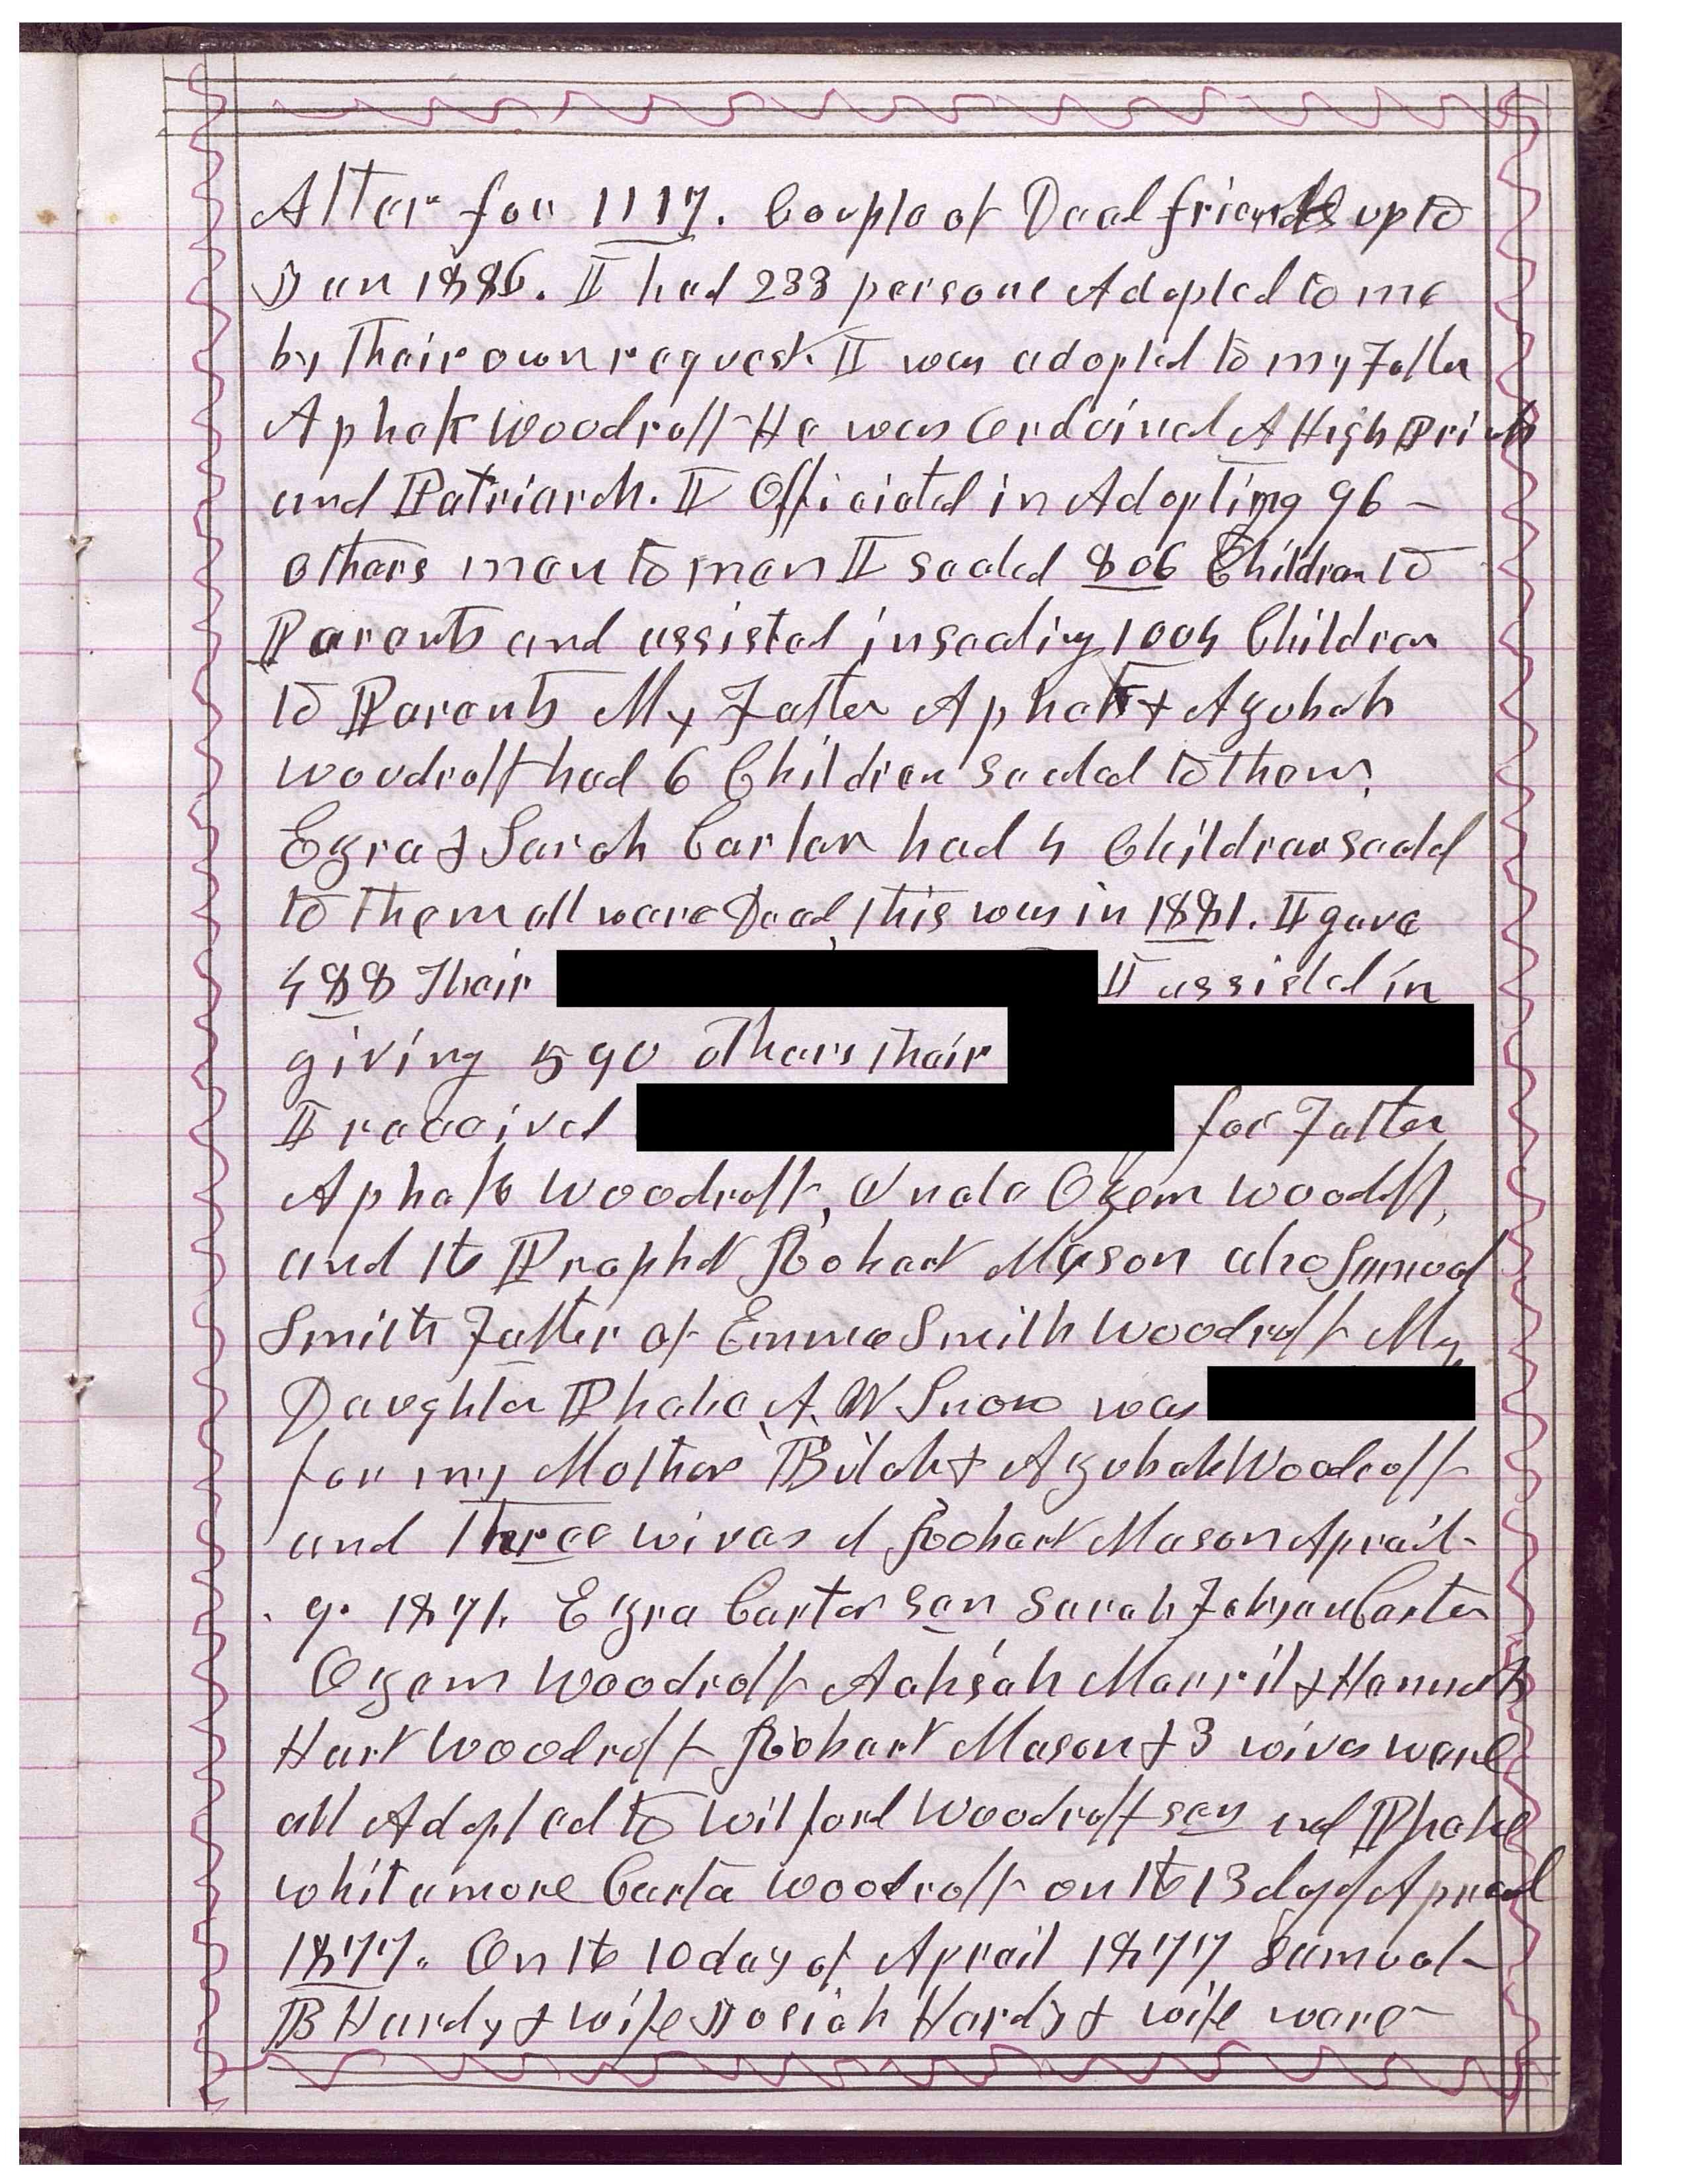 Alter for 1117. Couple of Dead friends up to
Jan 1886. I had 233 persons Adopted to me
by their own request. I was adopted to my Father
Aphek Woodruff He was Ordained A High Priest
and Patriarch. I Officiated in Adopting 96 -
others man to man I sealed 806 Children to
Parents and assisted in sealing 1004 Children
to Parents My Father Aphek & Azubah
Woodruff had 6 Children sealed to them,
Ezra & Sarah Carter had 4 Children sealed
to them all were Dead, this was in 1881. I gave
488 Their I assisted in
giving 590 others their
I received for Father
Aphek Woodruff, Uncle Ozem Woodruff,
and the Prophet Robert Mason also Samuel
Smith Father of Emma Smith Woodruff My
Daughter Phebe A. W Snow was
for my Mothers Bulah & Azubah Woodruff
and Three wives of Robert Mason Aprail-
9. 1871. Ezra Carter sen Sarah Fabyan Carter
Ozem Woodruff Acksah Merril & Hannah
Hart Woodruff Robert Mason & 3 wives were
all Adopted to Wilford Woodruff sen and Phebe
Whitemore Carter Woodruff on the 13 day of Aprail
1877. On the 10 day of Aprail 1877 Samuel-
B Hardy & wife Josiah Hardy & wife were